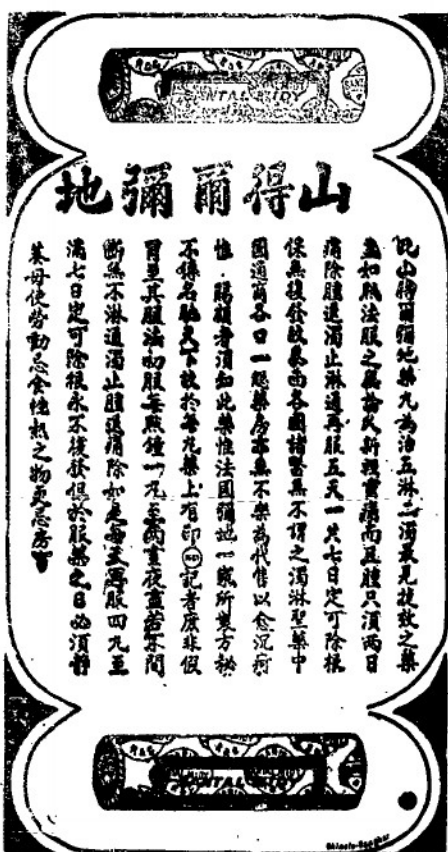 SANTAL MIDY
山得爾彌地
此山得爾彌地藥丸為治五淋二濁最見捷效之藥
如照法服之無論久新裡實痛而且腫只須兩日
痛除腫退濁止淋通再服五天一共七日定可除根
保無復發歐各國諸醫無不謂之濁淋聖藥中
國通商各口一總藥房亦無不樂為代售以愈沉疴
惟賜顧者須知此藥惟法國彌地一家所製方
不得名馳天下故於每丸藥上有印記者庶非假
冒至其服法初服每點鐘一丸至兩晝夜盡若不間
斷無不淋通濁止腫退痛除如是每天再服四丸至
滿七日定可除根永不復發但於服藥之日必須靜
養毋使勞動忌食性熱之物更忌房
SANTAL MIDY